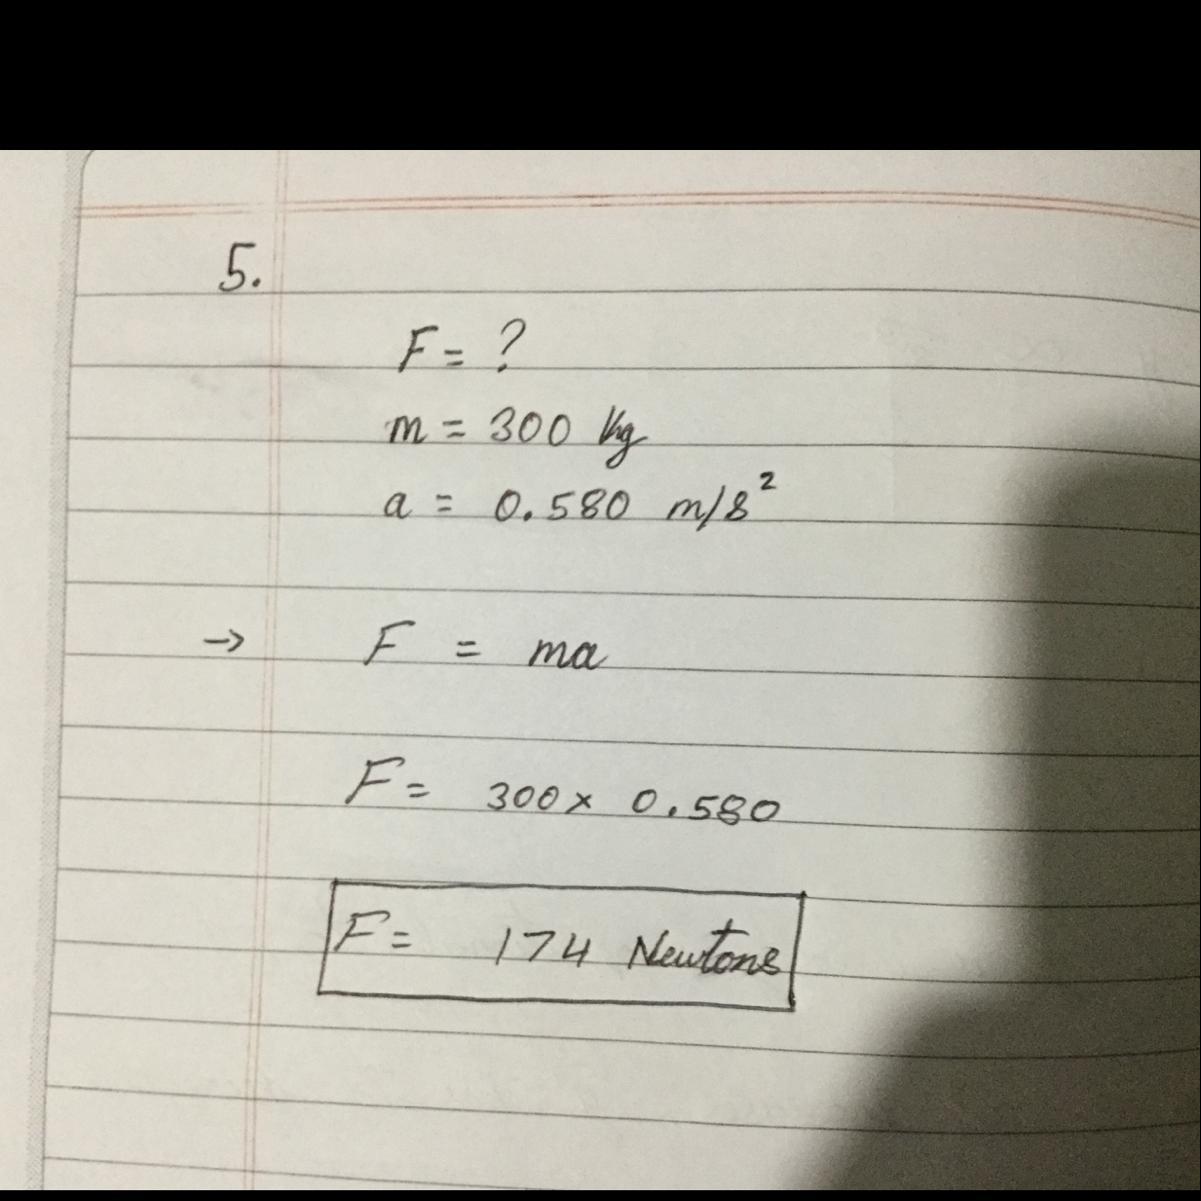 5.
F = ?
m = 300 kg
a = 0.580 m/s²
→ F = ma
F = 300 × 0.580
F = 174 Newtons